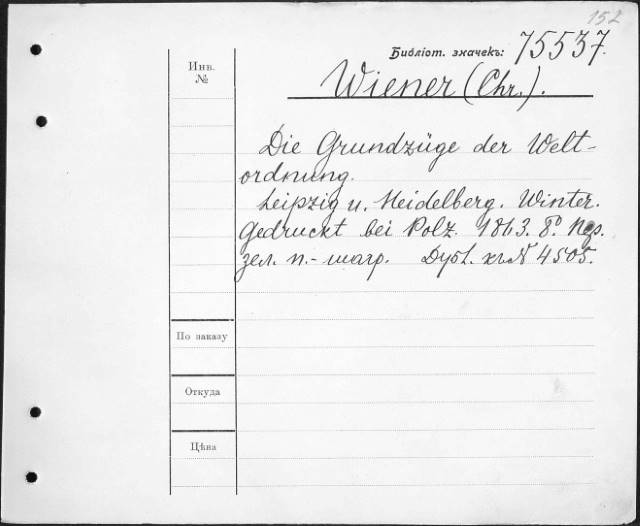 152
Библіот. значекъ: 75537.
Инв.
№
Wiener (Chr.).
Die Grundzüge der Welt-
ordnung.
Leipzig u. Heidelberg. Winter.
Gedruckt bei Polz. 1863. 8º. Пер.
зел. п.-шагр. Дубл. къ № 4505.
По заказу
Откуда
Цѣна